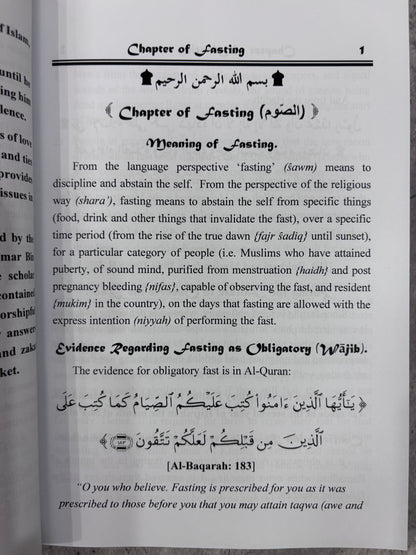 of Islam,
until he
ing him
lence.
s of love
and ties
provide
issues in
d by the
mar Bin
e scholar
contained
orshipful
answer
and zaka
ket.
Chapter of Fasting 1
بسم الله الرحمن الرحيم
﴿ Chapter of Fasting (الصّوم) ﴾
Meaning of Fasting.
From the language perspective ‘fasting’ (ṣawm) means to
discipline and abstain the self. From the perspective of the religious
way (shara’), fasting means to abstain the self from specific things
(food, drink and other things that invalidate the fast), over a specific
time period (from the rise of the true dawn {fajr ṣadiq} until sunset),
for a particular category of people (i.e. Muslims who have attained
puberty, of sound mind, purified from menstruation {haidh} and post
pregnancy bleeding {nifas}, capable of observing the fast, and resident
{mukim} in the country), on the days that fasting are allowed with the
express intention (niyyah) of performing the fast.
Evidence Regarding Fasting as Obligatory (Wājib).
The evidence for obligatory fast is in Al-Quran:
﴿ يَـٰٓأَيُّهَا ٱلَّذِينَ ءَامَنُوا۟ كُتِبَ عَلَيْكُمُ ٱلصِّيَامُ كَمَا كُتِبَ عَلَى
ٱلَّذِينَ مِن قَبْلِكُمْ لَعَلَّكُمْ تَتَّقُونَ ١٨٣ ﴾
[Al-Baqarah: 183]
“O you who believe. Fasting is prescribed for you as it was
prescribed to those before you that you may attain taqwa (awe and